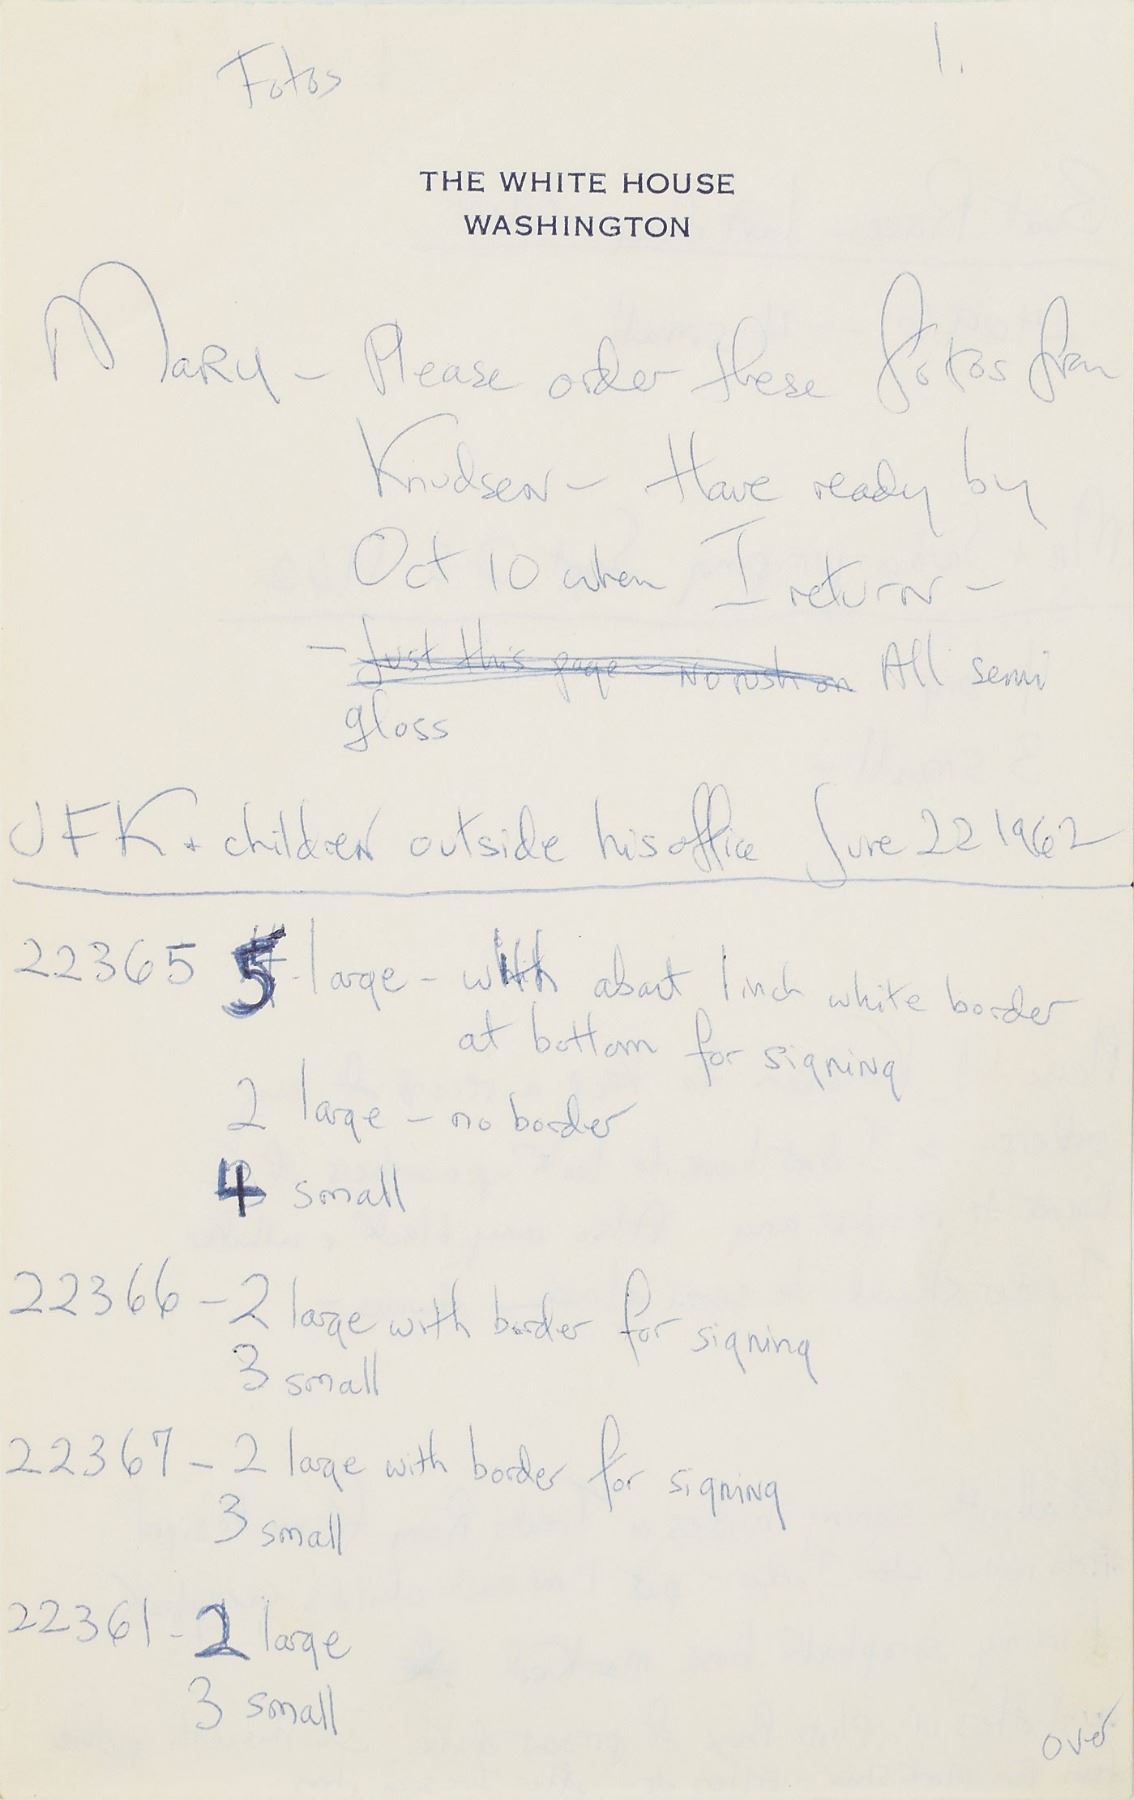 Fotos
1.
THE WHITE HOUSE
WASHINGTON
Mary – Please order these fotos from
Knudsen – Have ready by
Oct 10 when I return –
– Just this page – No rush on All semi
gloss
JFK + children outside his office June 22 1962
22365 5 large – with about 1 inch white border
at bottom for signing
2 large – no border
4 small
22366 – 2 large with border for signing
3 small
22367 – 2 large with border for signing
3 small
22361 – 2 large
3 small
over